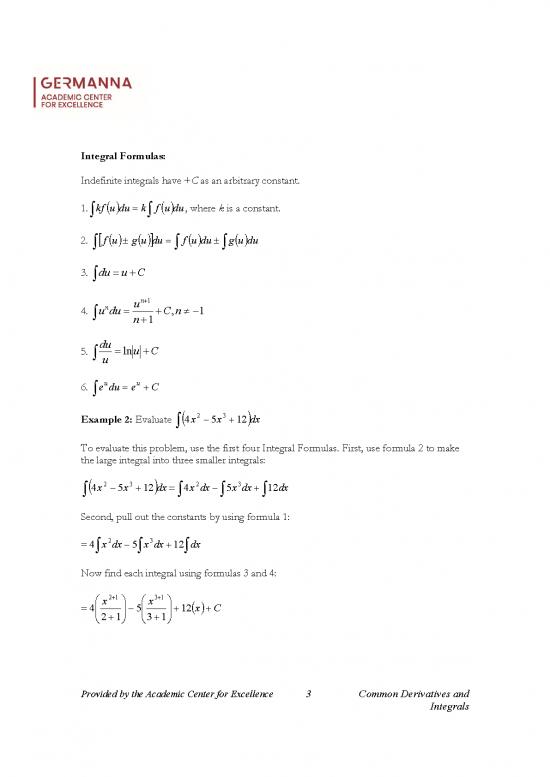 GERMANNA
ACADEMIC CENTER
FOR EXCELLENCE
Integral Formulas:
Indefinite integrals have +C as an arbitrary constant.
1. ∫kf(u)du = k∫f(u)du, where k is a constant.
2. ∫[f(u) ± g(u)]du = ∫f(u)du ± ∫g(u)du
3. ∫du = u + C
4. ∫uⁿdu = uⁿ⁺¹/(n+1) + C, n ≠ −1
5. ∫du/u = ln|u| + C
6. ∫eᵘdu = eᵘ + C
Example 2: Evaluate ∫(4x² − 5x³ + 12)dx
To evaluate this problem, use the first four Integral Formulas. First, use formula 2 to make
the large integral into three smaller integrals:
∫(4x² − 5x³ + 12)dx = ∫4x²dx − ∫5x³dx + ∫12dx
Second, pull out the constants by using formula 1:
= 4∫x²dx − 5∫x³dx + 12∫dx
Now find each integral using formulas 3 and 4:
= 4(x²⁺¹/(2+1)) − 5(x³⁺¹/(3+1)) + 12(x) + C
Provided by the Academic Center for Excellence 3 Common Derivatives and
Integrals